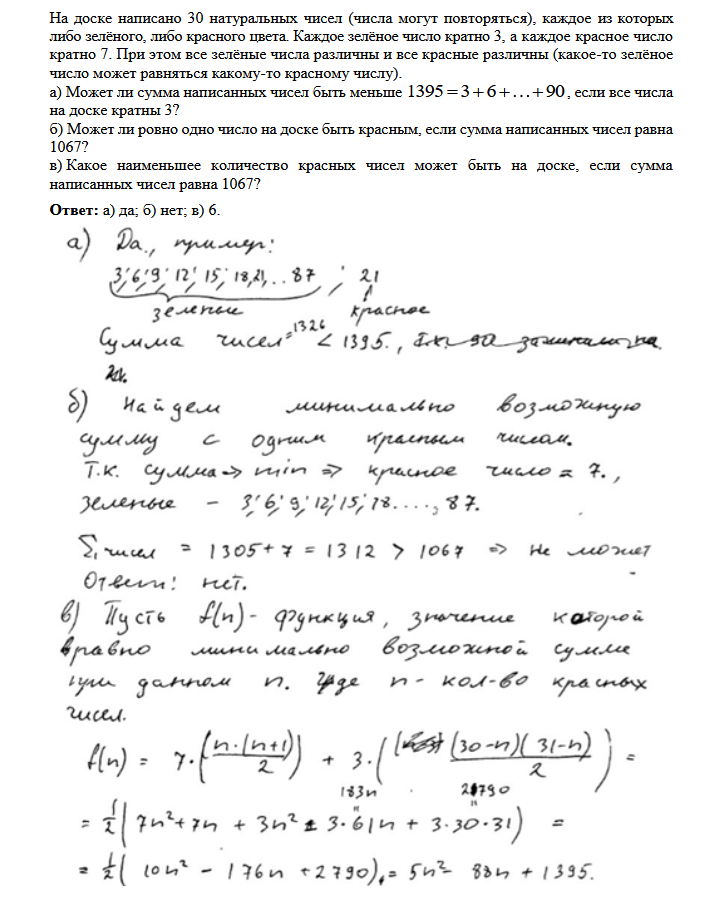 На доске написано 30 натуральных чисел (числа могут повторяться), каждое из которых
либо зелёного, либо красного цвета. Каждое зелёное число кратно 3, а каждое красное число
кратно 7. При этом все зелёные числа различны и все красные различны (какое-то зелёное
число может равняться какому-то красному числу).
а) Может ли сумма написанных чисел быть меньше 1395 = 3 + 6 + … + 90, если все числа
на доске кратны 3?
б) Может ли ровно одно число на доске быть красным, если сумма написанных чисел равна
1067?
в) Какое наименьшее количество красных чисел может быть на доске, если сумма
написанных чисел равна 1067?
Ответ: а) да; б) нет; в) 6.
а) Да., пример:
3; 6; 9; 12; 15; 18, 21, .. 87 ; 21
зеленые красное
Сумма чисел = 1326 < 1395.,
б) Найдем минимально возможную
сумму с одним красным числом.
Т.к. сумма → min ⇒ красное число = 7.,
зеленые - 3; 6; 9; 12; 15; 18....., 87.
Σ чисел = 1305 + 7 = 1312 > 1067 ⇒ не может
Ответ: нет.
в) Пусть f(n) - функция, значение которой
равно минимально возможной сумме
при данном n. где n - кол-во красных
чисел.
f(n) = 7·(n·(n+1)/2) + 3·((30-n)(31-n)/2) =
183n 2790
= 1/2(7n²+7n + 3n² - 3·61n + 3·30·31) =
= 1/2(10n² - 176n + 2790) = 5n² - 88n + 1395.